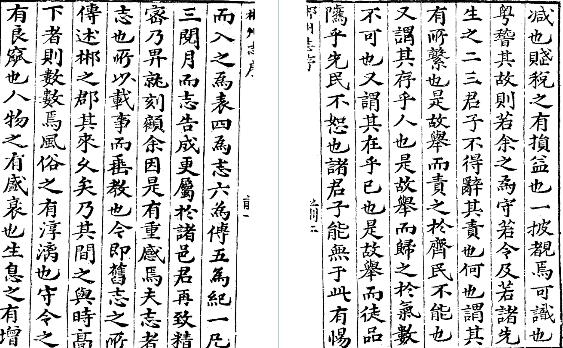 郴州志序
而入之為表四為志六為傳五為紀一凡
三閱月而志告成更屬於諸邑君再致精
審乃畀誌刻顧余因是有重感焉夫志者
志也所以載事而垂教也今即舊志之所
傳述郴之郡其來久矣乃其間之與時高
下者則數數焉風俗之有淳漓也守令之
有良窳也人物之有盛衰也生息之有增
郴州志序
減也賦稅之有損益也一披覩焉可識也
粵稽其故則若余之為守若令及若諸先
生之二三君子不得辭其責也何也謂其
有所繫也是故舉而責之於齊民不能也
又謂其存乎人也是故舉而歸之於氣數
不可也又謂其在乎已也是故舉而徒品
隲乎先民不恕也諸君子能無于此有惕